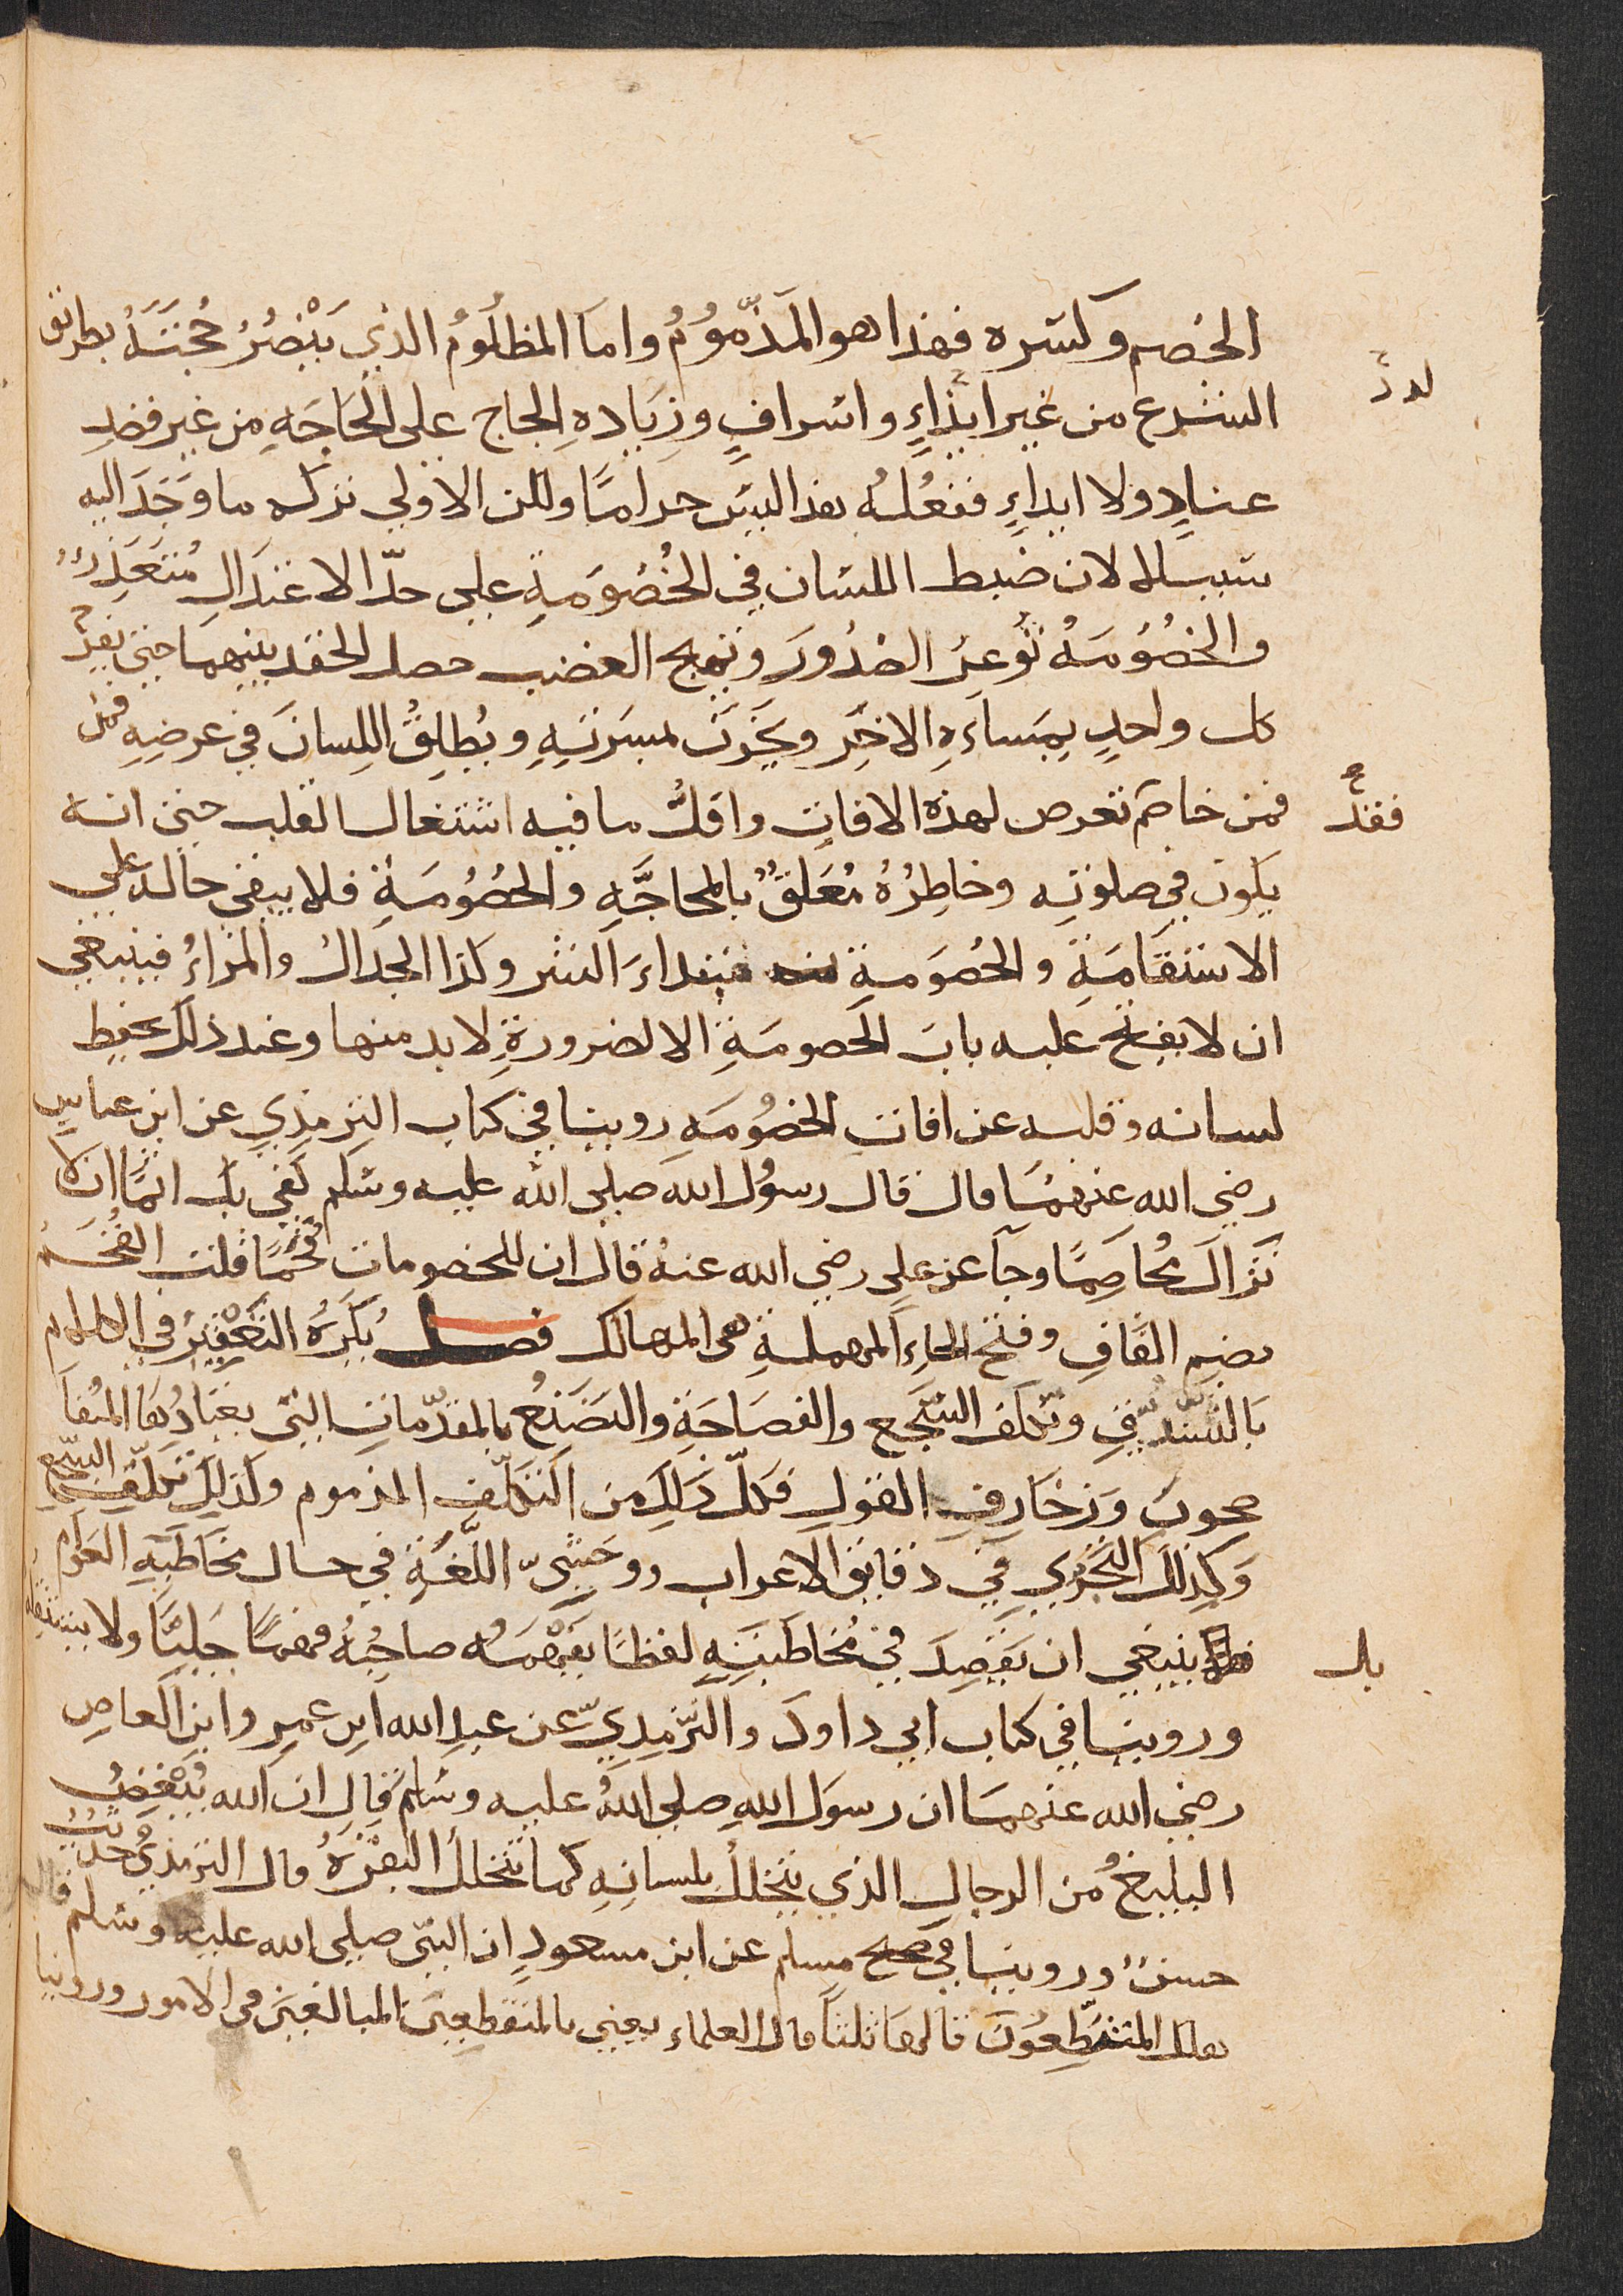 الخصم وكسره فهذا هو المَذْمُومُ واما المظلُومُ الذي يَنْصُرُ حُجَّتَهُ بطريق
الشرع من غير ايذاءٍ واسرافٍ وزيَادهِ الحجاج على الحَاجَهِ من غير قصدِ
لدد
عنادٍ ولا ايذاءٍ ففعْلُهُ هذا ليس حراماً ولكن الاولى تركه ما وَجَدَ اليه
سبيلا لان ضبط اللسَان في الخُصُومَةِ على حدّ الاعتدَالِ مُتعَذِرٌ
والخصُوُمَهُ تُوغِرُ الصُدُورَ وتهيج الغضب حصل الحقد بينهما حتى يفرح
كل واحدٍ بِمَساءَةِ الاخَرِ ويحْزنَ لمسَرّتهِ ويُطلِقُ اللِسانَ في عرضِهِ فمن
فمن خاصَم تعرص لهذه الافات واقلُّ ما فيه اشتغال القلب حتى انه
فقد
يكون في صلوتِه وخاطِرُهُ مُعَلقٌ بالمحاجَّهِ والخصُوُمَةِ فلا يبقى حاله على
الاستقَامَةِ والخصُومَةِ مبتداءَ الشر وكذا الجدَالُ والمَراءُ فينبغي
ان لا يفتح عليه بابَ الخصومَةِ الا لضرورةٍ لا بد منها وعند ذلك يحفظ
لسانه وقلبه عن افات الخصُومَهِ روينا في كتاب الترمذي عن ابن عباسٍ
رضي الله عنهمَا قال قال رسوُل الله صلى الله عليه وسَلم كفى بك اثمًا ان لا
تزالَ مُخاصِمًا وجآ عن علي رضي الله عنهُ قال ان للخصومات قُحَمًا قلت القُحَمُ
بضم القَافِ وفتح الحاءِ المهملةِ هى المهالك فصل يُكرَهُ التَقْعِيْرُ في الكلام
بَالتشدّقِ وتكلف السَّجع والفصَاحَةِ والتصَنعُ بالمقدّماتِ التى يعتادُهَا المُتفا
صحونَ وزخَارفِ القولِ فكلّ ذلكِ من التكلّف المذموم وكذلك تكلّف السّجع
وَكذلك التحَرّي في دقايق الاعراب ووحَشىّ اللّغَةِ في حال مخَاطَبَهِ العوَام
ينبغي ان يقصِدَ في مُخاطَبَتِهِ لفظًا يفهَمُه صاحِبُهُ فهمًا جَليًّا ولا يستثقله
بل
وروينا في كتاب ابي داودَ والترّمِذيّ عن عبدِ الله ابن عمرٍ وابن العاصِ
رضى الله عنهمَا ان رسوَل اللهِ صلى اللهُ عليه وسَلمَ قال ان الله يُبْغِضُ
البليغُ من الرجالِ الذي يتخللُ بلسانِهِ كما تتخللُ البقرَةُ قال الترمذيُ حديثٌ
حسنٌ وروينا في صحيح مسلم عن ابن مسعودٍ ان النبىّ صلى الله عليه وسَلم قال
هلك المتنطِّعُونَ قالهَا ثلثاً قال العلماء يعني بالمتنطعين المبالغين في الامور وروينا